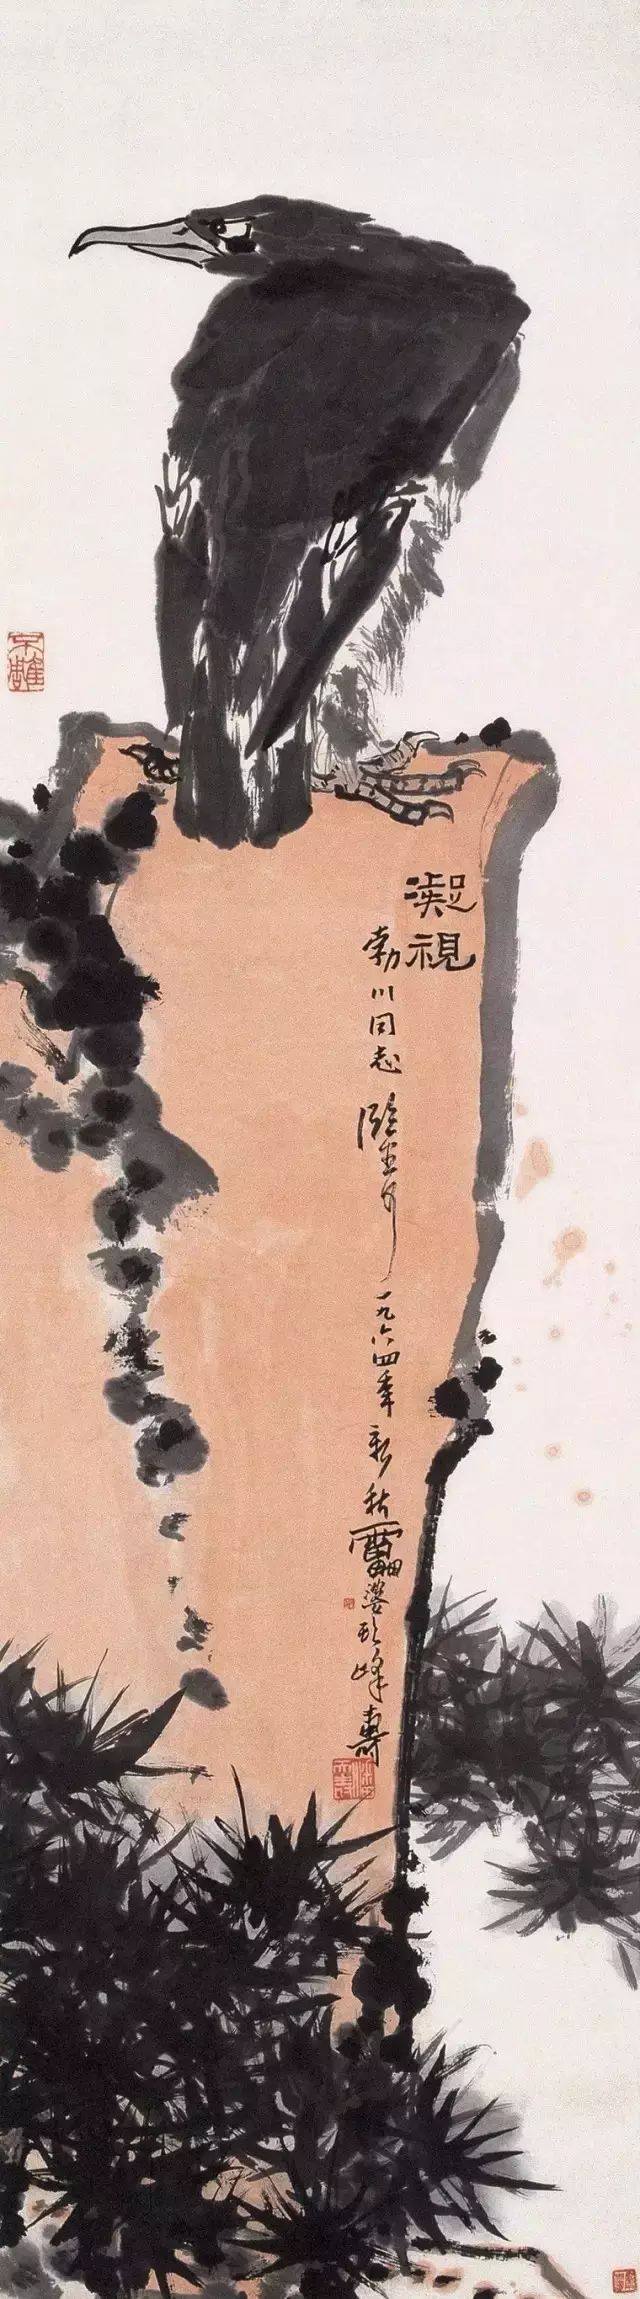 凝視
勃川同志 一九六四年新秋靁婆頭峰壽
不雕